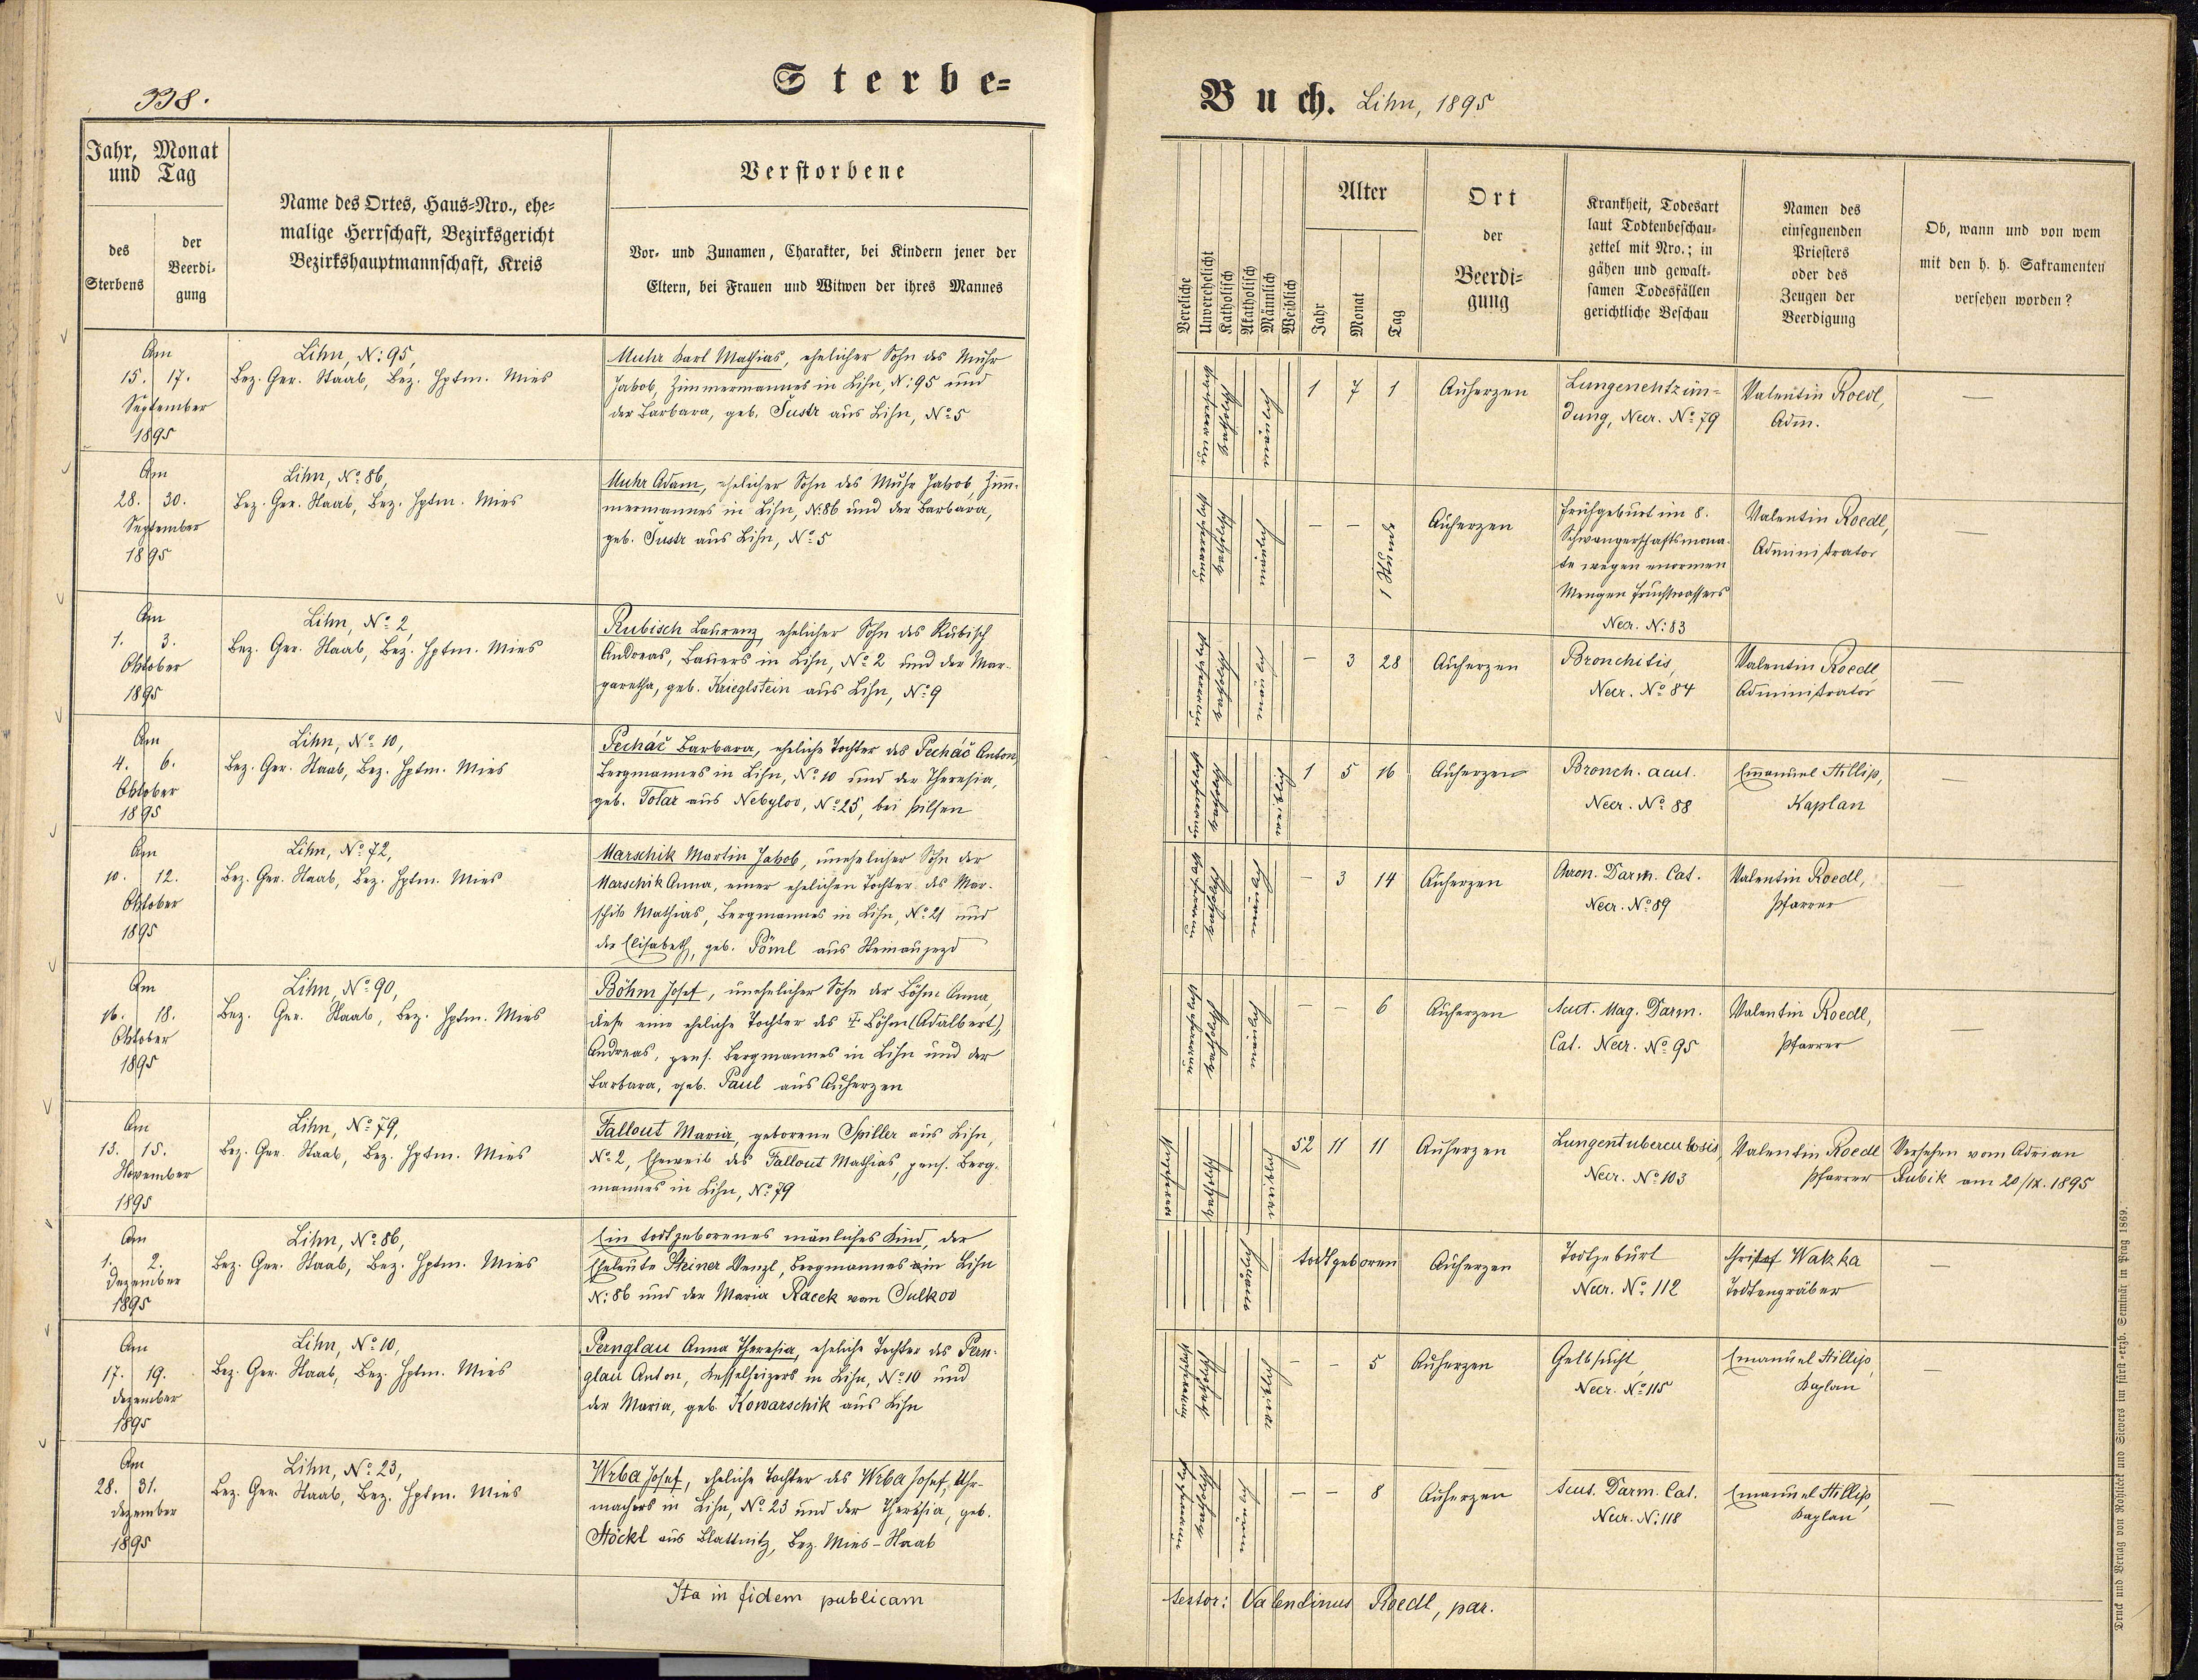 338.
Sterbe=
Buch. Lihn, 1895
Jahr, Monat
und Tag
des
Sterbens
der
Beerdi-
gung
Name des Ortes, Haus=Nro., ehe=
malige Herrschaft, Bezirksgericht
Bezirkshauptmannschaft, Kreis
Verstorbene
Vor- und Zunamen, Charakter, bei Kindern jener der
Eltern, bei Frauen und Witwen der ihres Mannes
Vereliche
Unverehelicht
Katholisch
Akatholisch
Männlich
Weiblich
Alter
Jahr
Monat
Tag
Ort
der
Beerdi-
gung
Krankheit, Todesart
laut Todtenbeschau-
zettel mit Nro.; in
gähen und gewalt-
samen Todesfällen
gerichtliche Beschau
Namen des
einsegnenden
Priesters
oder des
Zeugen der
Beerdigung
Ob, wann und von wem
mit den h. h. Sakramenten
versehen worden?
Am
15. 17.
September
1895
Lihn, N: 95,
Bez. Ger. Staab, Bez. Hptm. Mies
Muhr Karl Mathias, ehelicher Sohn des Muhr
Jakob, Zimmermannes in Lihn, N: 95 und
der Barbara, geb. Šustr aus Lihn, No 5
unverehelicht
katholisch
männlich
1 7 1
Auherzen
Lungenentzün=
dung, Neer. No 79
Valentin Roedl,
Adm.
—
Am
28. 30.
September
1895
Lihn, No 86,
Bez. Ger. Staab, Bez. Hptm. Mies
Muhr Adam, ehelicher Sohn des Muhr Jakob, Zim-
mermannes in Lihn, N: 86 und der Barbara,
geb. Šustr aus Lihn, No 5
unverehelicht
katholisch
männlich
— — 1 Stunde
Auherzen
Frühgeburt im 8.
Schwangerschaftsmona-
te wegen enormen
Mengen Fruchtwassers
Neer. N: 83
Valentin Roedl,
Administrator
—
Am
1. 3.
Oktober
1895
Lihn, No 2,
Bez. Ger. Staab, Bez. Hptm. Mies
Rubisch Laurenz, ehelicher Sohn des Rubisch
Andreas, Bauers in Lihn, No 2 und der Mar-
garetha, geb. Krieglstein aus Lihn, No 9
unverehelicht
katholisch
männlich
— 3 28
Auherzen
Bronchitis,
Neer. No 84
Valentin Roedl,
Administrator
—
Am
4. 6.
Oktober
1895
Lihn, No 10,
Bez. Ger. Staab, Bez. Hptm. Mies
Pecháč Barbara, eheliche Tochter des Pecháč Anton,
Bergmannes in Lihn, No 10 und der Theresia,
geb. Tolar aus Nebylov, No 25, bei Pilsen
unverehelicht
katholisch
weiblich
1 5 16
Auherzen
Bronch. acut.
Neer. No 88
Emanuel Hillip,
Kaplan
—
Am
10. 12.
Oktober
1895
Lihn, No 72,
Bez. Ger. Staab, Bez. Hptm. Mies
Marschik Martin Jakob, unehelicher Sohn der
Marschik Anna, einer ehelichen Tochter des Mar-
schik Mathias, Bergmannes in Lihn, No 21 und
der Elisabeth, geb. Pöml aus
unverehelicht
katholisch
männlich
— 3 14
Auherzen
Chron. Darm. Cat.
Neer. No 89
Valentin Roedl,
Pfarrer
—
Am
16. 18.
Oktober
1895
Lihn, No 90,
Bez. Ger. Staab, Bez. Hptm. Mies
Böhm Josef, unehelicher Sohn der Böhm Anna,
diese eine eheliche Tochter des Böhm (Adalbert),
Andreas, pens. Bergmannes in Lihn und der
Barbara, geb. Paul aus Auherzen
unverehelicht
katholisch
männlich
— — 6
Auherzen
Acut. Mag. Darm.
Cat. Neer. No 95
Valentin Roedl,
Pfarrer
—
Am
13. 15.
November
1895
Lihn, No 79,
Bez. Ger. Staab, Bez. Hptm. Mies
Fallout Maria, geborene Spiller aus Lihn,
No 2, Eheweib des Fallout Mathias, pens. Berg-
mannes in Lihn, No 79
verehelicht
katholisch
weiblich
52 11 11
Auherzen
Lungentuberculosis,
Neer. No 103
Valentin Roedl
Pfarrer
Versehen vom Adrian
Rubik am 20/IX. 1895
Am
1. 2.
Dezember
1895
Lihn, No 86,
Bez. Ger. Staab, Bez. Hptm. Mies
Ein todtgeborenes mänliches Kind, der
Eheleute Steiner Wenzl, Bergmannes in Lihn
N: 86 und der Maria Racek von Sulkov
männlich
todtgeboren
Auherzen
Todtgeburt
Neer. No 112
Christof Watzka
Todtengräber
—
Am
17. 19.
Dezember
1895
Lihn, No 10,
Bez. Ger. Staab, Bez. Hptm. Mies
Pernglau Anna Theresia, eheliche Tochter des Pern-
glau Anton, Kesselheizers in Lihn, No 10 und
der Maria, geb. Kowarschik aus Lihn
unverehelicht
katholisch
weiblich
— — 5
Auherzen
Gelbsucht,
Neer. No 115
Emanuel Hillip,
Kaplan
—
Am
28. 31.
Dezember
1895
Lihn, No 23,
Bez. Ger. Staab, Bez. Hptm. Mies
Wrba Josef, eheliche Tochter des Wrba Josef, Uhr-
machers in Lihn, No 23 und der Theresia, geb.
Stöckl aus Blattnitz, Bez. Mies-Staab
unverehelicht
katholisch
männlich
— — 8
Auherzen
Acut. Darm. Cat.
Neer. N: 118
Emanuel Hillip,
Kaplan
—
Ita in fidem publicam
testor: Valentinus Roedl, par.
Druck und Verlag von Rohliček und Sievers im fürst-erzb. Seminär in Prag 1869.